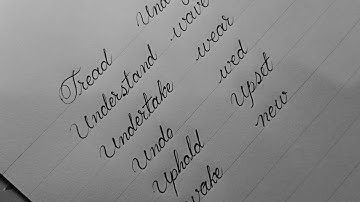 Tread
Understand -wave
Undertake -wear
Undo -wed
Uphold Upset
new